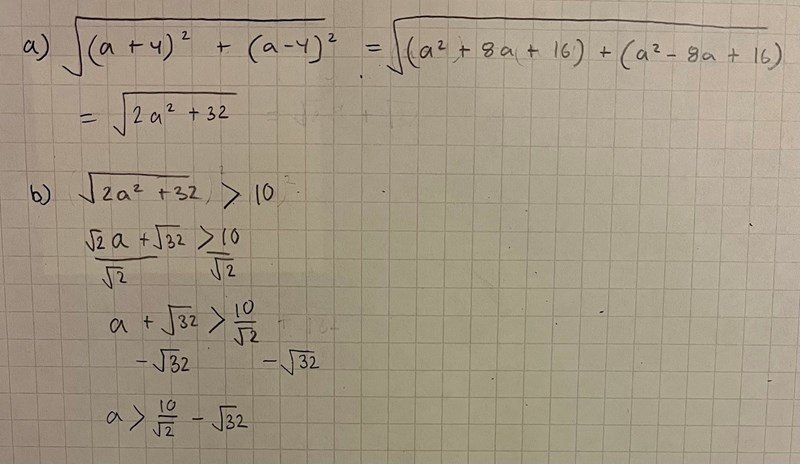 a) √((a + 4)² + (a-4)²) = √((a² + 8a + 16) + (a² - 8a + 16))
= √(2a² + 32)
b) √(2a² + 32) > 10
(√2a + √32)/√2 > 10/√2
a + √32 > 10/√2
-√32 -√32
a > 10/√2 - √32